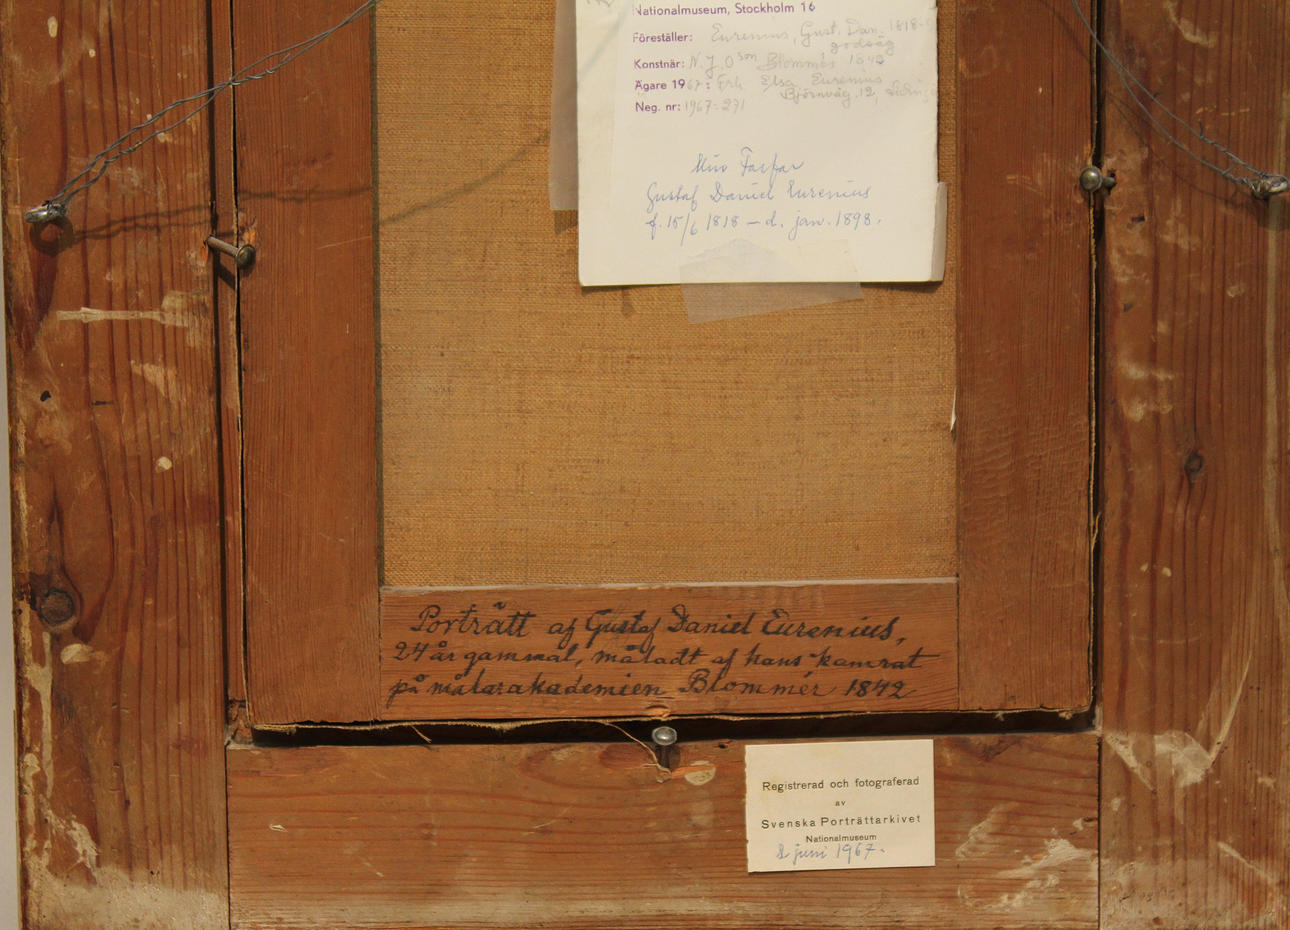 Nationalmuseum, Stockholm 16
Föreställer: Eurenius, Gust. Dan. 1818-
godsäg
Konstnär: N. J. O:son Blommér 1842
Ägare 1967: Frk Elsa Eurenius
Björnväg. 12,
Neg. nr: 1967:271
Min Farfar
Gustaf Daniel Eurenius
f. 15/6 1818 – d. jan. 1898.
Porträtt af Gustaf Daniel Eurenius,
24 år gammal, måladt af hans kamrat
på målarakademien Blommér 1842
Registrerad och fotograferad
av
Svenska Porträttarkivet
Nationalmuseum
2 juni 1967.